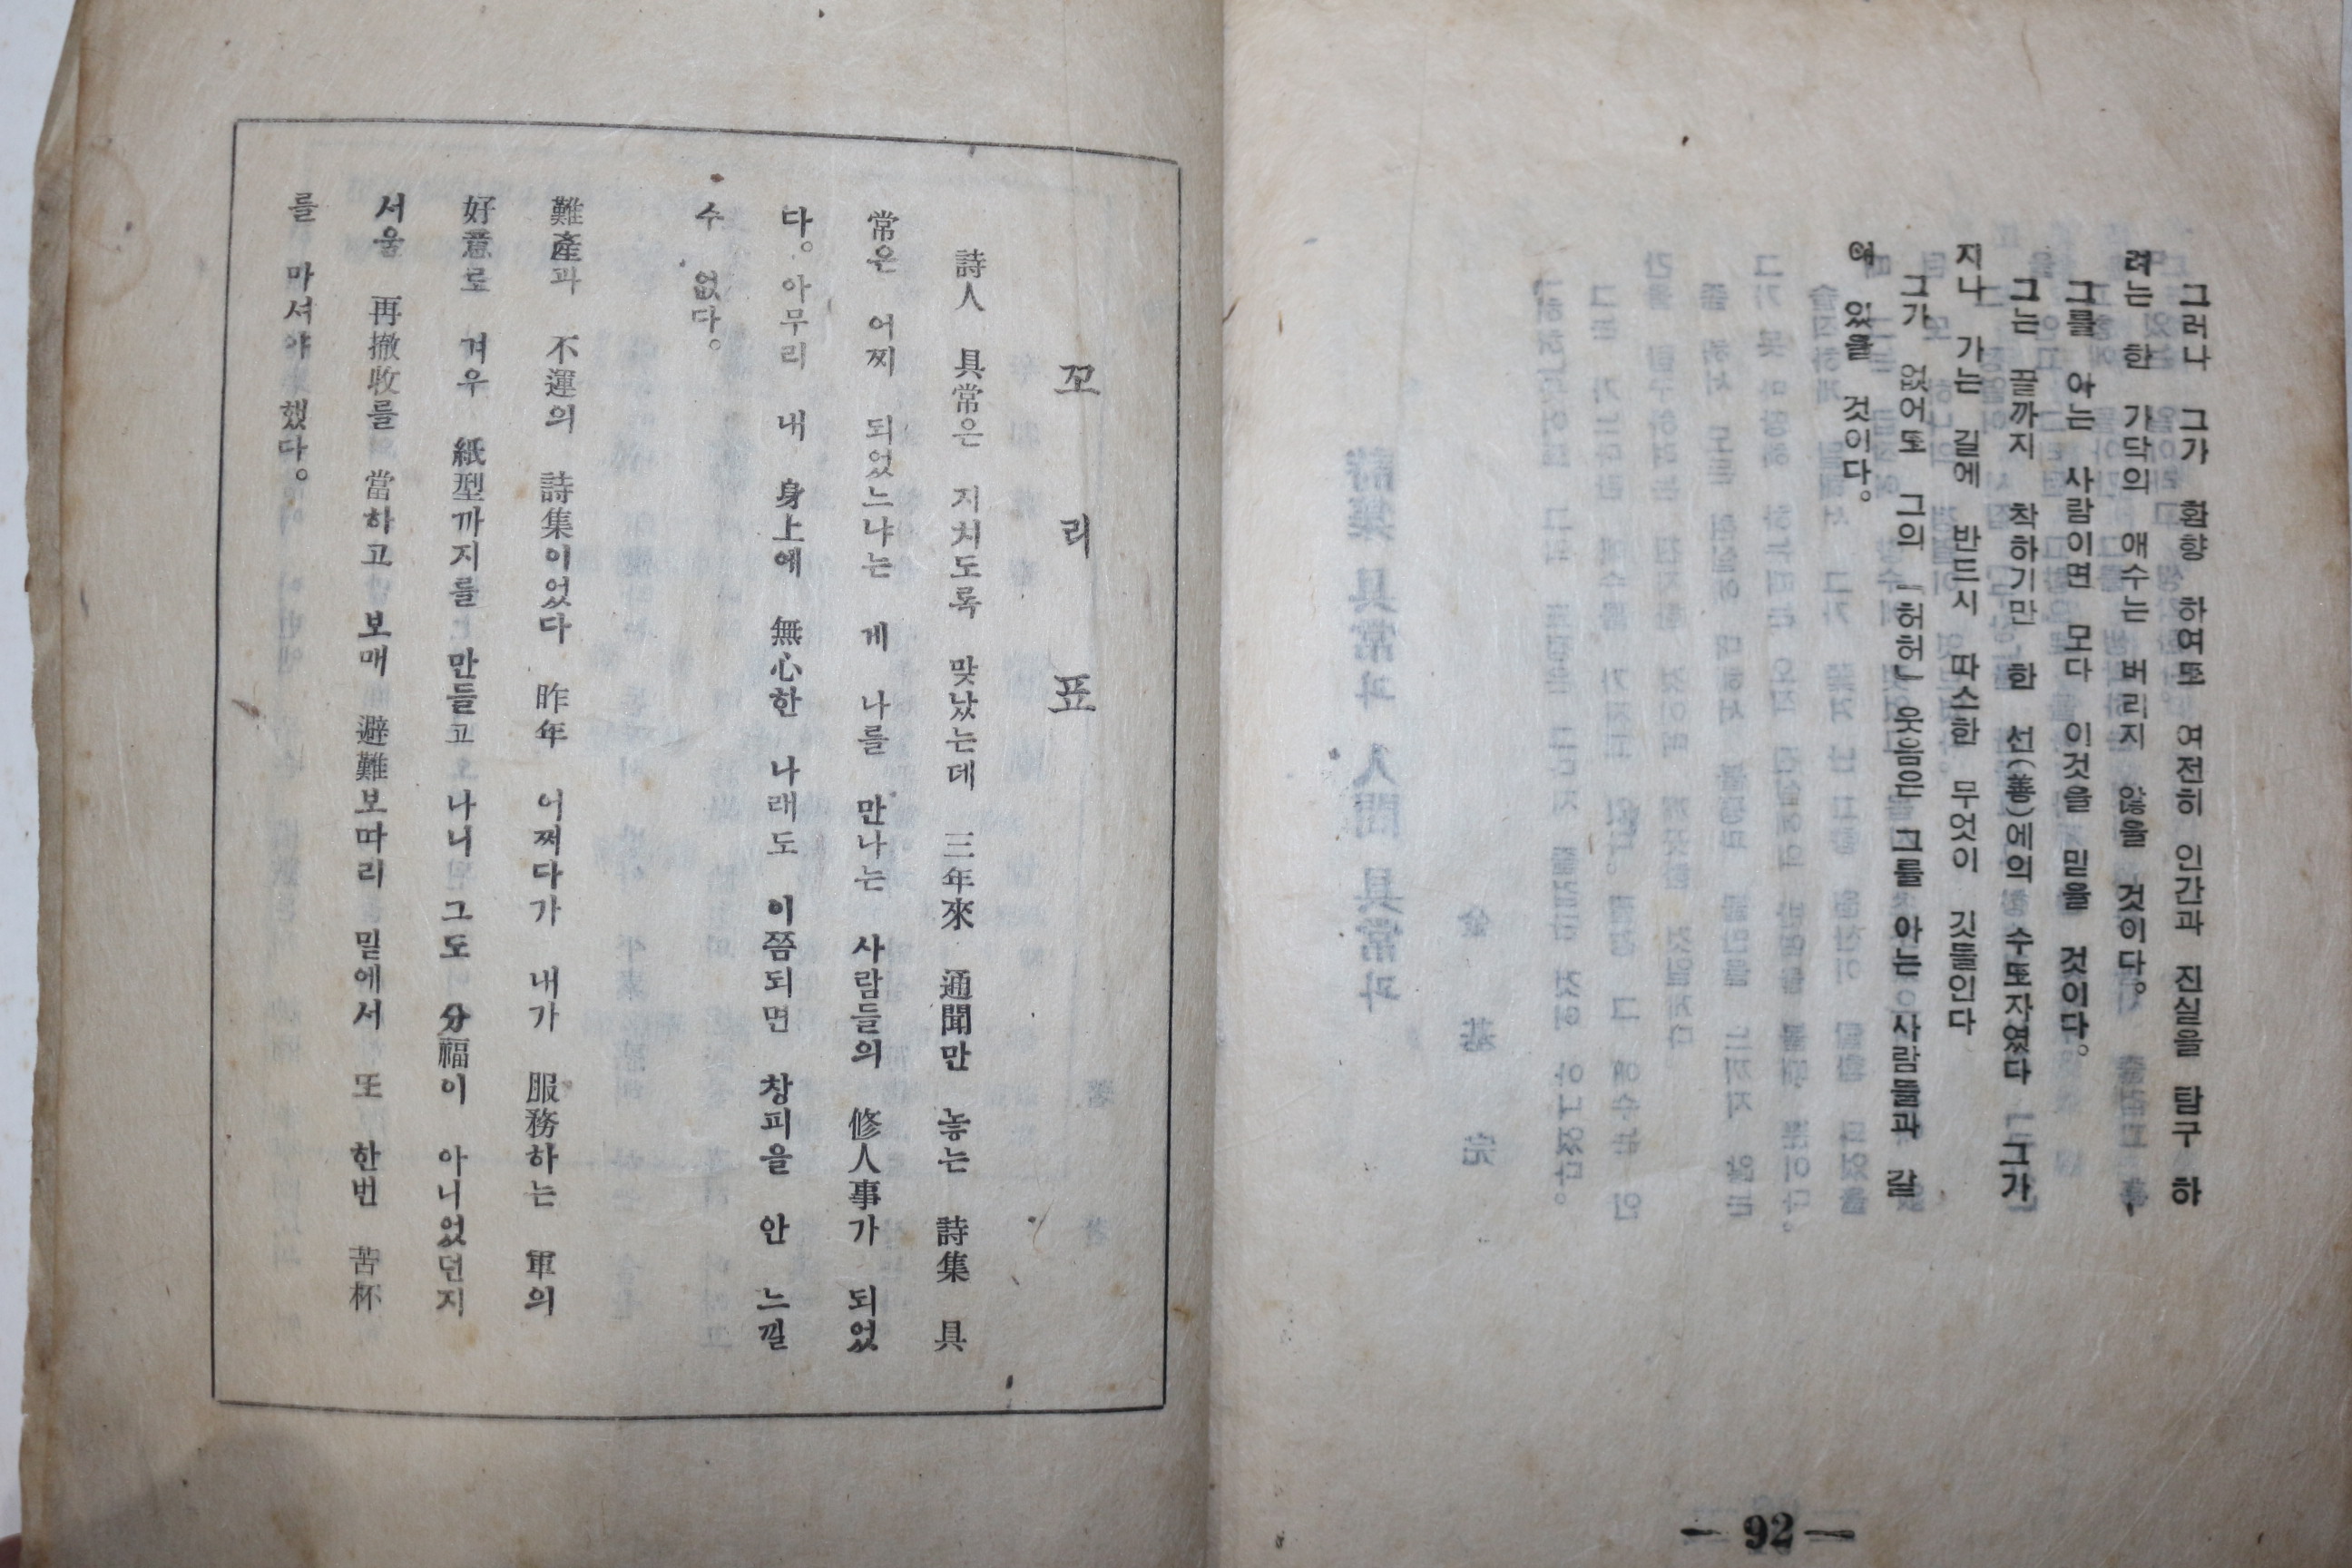 그러나 그가 환향 하여또 여전히 인간과 진실을 탐구 하
려는 한 가닥의 애수는 버리지 않을 것이다.
그를 아는 사람이면 모다 이것을 믿을 것이다.
그는 끝까지 착하기만 한 선(善)에의 수또자였다 그가
지나 가는 길에 반드시 따스한 무엇이 깃들인다
그가 없어또 그의 「허허」 웃음은 그를 아는 사람들과 같
이 있을 것이다.
— 92 —
꼬리표
詩人 具常은 지치도록 맞났는데 三年來 通聞만 놓는 詩集 具
常은 어찌 되었느냐는 게 나를 만나는 사람들의 修人事가 되었
다。아무리 내 身上에 無心한 나래도 이쯤되면 창피을 안 느낄
수 없다。
難產과 不運의 詩集이었다 昨年 어쩌다가 내가 服務하는 軍의
好意로 겨우 紙型까지를 만들고 나니 그도 分福이 아니었던지
서울 再撤收를 當하고 보매 避難보따리 밑에서 또 한번 苦杯
를 마셔야 했다。